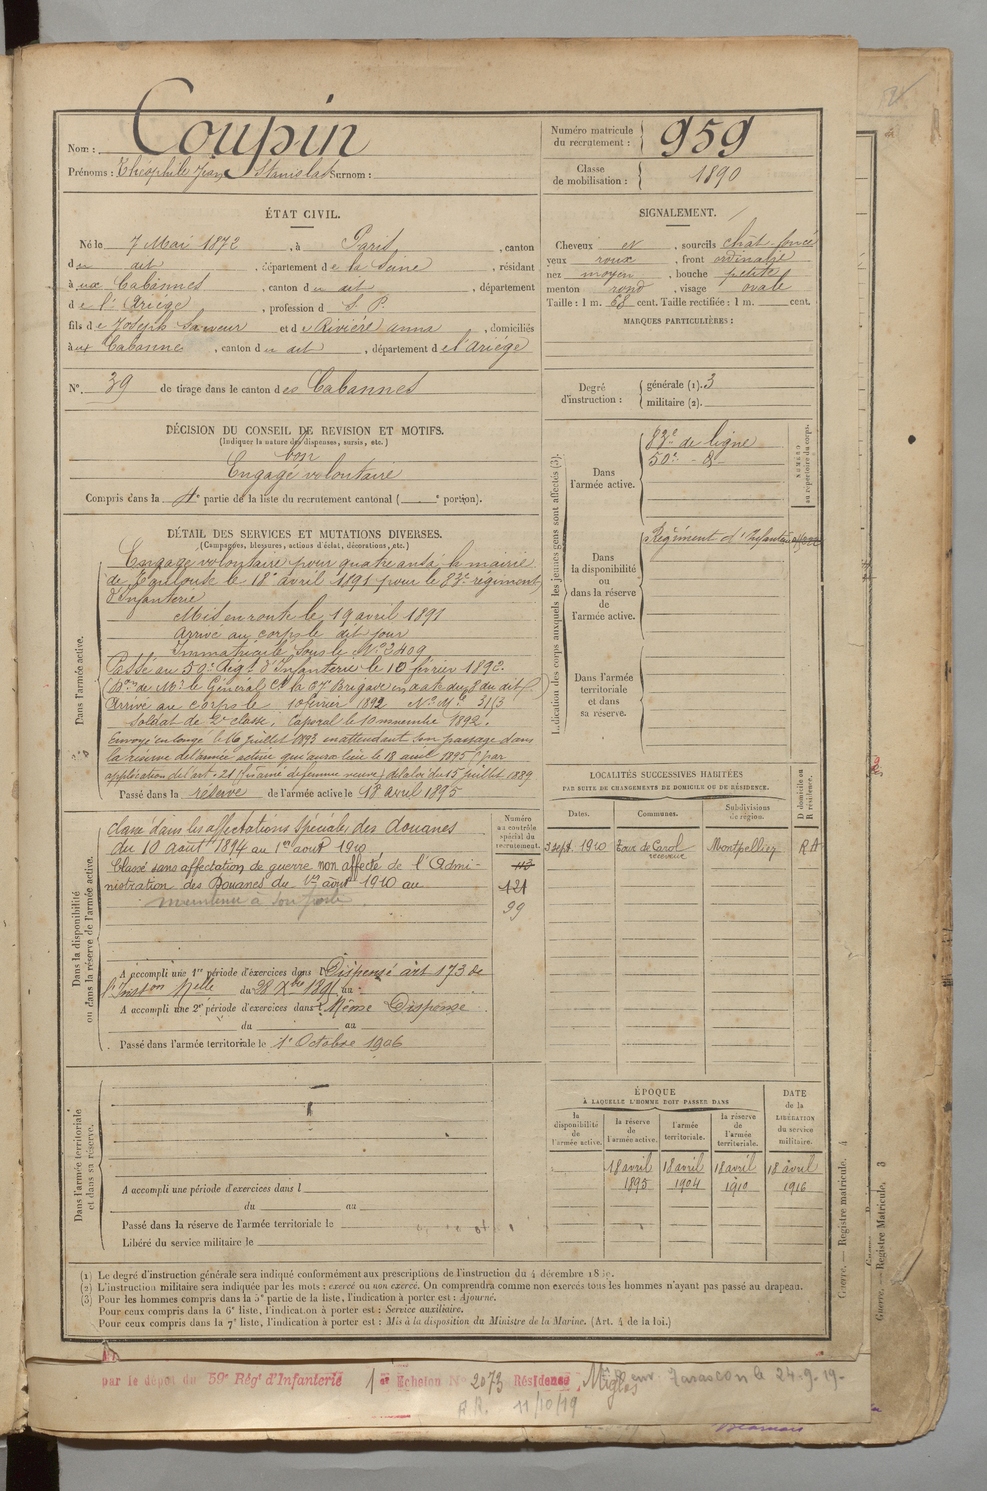 Nom : Coupin
Prénoms : Théophile Jean Stanislas Surnom :
Numéro matricule du recrutement : 959
Classe de mobilisation : 1890
ÉTAT CIVIL.
Né le 7 Mai 1872, à Paris, canton
du dit, département de la Seine, résidant
à aux Cabannes, canton du dit, département
de l'Ariége, profession d S. P.
fils de Joseph Sauveur et de Rivière anna, domiciliés
à aux Cabanne, canton du dit, département de l'Ariége
N° 39 de tirage dans le canton des Cabannes
SIGNALEMENT.
Cheveux et, sourcils chât-foncé
yeux roux, front ordinaire
nez moyen, bouche petite
menton rond, visage ovale
Taille : 1 m. 68 cent. Taille rectifiée : 1 m. cent.
MARQUES PARTICULIÈRES :
Degré d'instruction : générale (1). 3
militaire (2).
DÉCISION DU CONSEIL DE REVISION ET MOTIFS.
(Indiquer la nature des dispenses, sursis, etc.)
bon
Engagé volontaire
Compris dans la 4e partie de la liste du recrutement cantonal ( e portion).
DÉTAIL DES SERVICES ET MUTATIONS DIVERSES.
(Campagnes, blessures, actions d'éclat, décorations, etc.)
Dans l'armée active.
Engagé volontaire pour quatre ans à la mairie
de Toulouse le 18 avril 1891 pour le 83e régiment
d'Infanterie
Mis en route le 19 avril 1891
Arrivé au corps le dit jour
Immatriculé sous le N° 3409
Passé au 50e Régt d'Infanterie le 10 février 1892.
(Don de Mr le Général Ct la 67e Brigade en date du 8 du dit)
Arrivé au corps le 10 février 1892 N° Mle 3115
Soldat de 2e classe. Caporal le 10 novembre 1892.
Envoyé en congé le 16 juillet 1893 en attendant son passage dans
la réserve de l'année active qui aura lieu le 18 avril 1895 (par
application de l'art. 21 (fils ainé de femme veuve) de la loi du 15 juillet 1889
Passé dans la réserve de l'armée active le 18 avril 1895
Indication des corps auxquels les jeunes gens sont affectés (3).
NUMÉRO au répertoire du corps.
Dans l'armée active.
83e de ligne
50e - d° -
Dans la disponibilité ou dans la réserve de l'armée active.
Régiment d'Infanterie
Dans l'armée territoriale et dans sa réserve.
Dans la disponibilité ou dans la réserve de l'armée active.
Classé dans les affectations spéciales des douanes
du 10 août 1894 au 1er août 1910
Classé sans affectation de guerre non affecté de l'Admi-
nistration des Douanes du 1er août 1910 au
maintenu à son poste
Numéro au contrôle spécial du recrutement.
113
121
99
A accompli une 1re période d'exercices dans l Dispensé art 173 de
l'Inston Melle du 28 Xbre 1895 au
A accompli une 2e période d'exercices dans l Même Dispense
du au
Passé dans l'armée territoriale le 1er Octobre 1906
LOCALITÉS SUCCESSIVES HABITÉES
PAR SUITE DE CHANGEMENTS DE DOMICILE OU DE RÉSIDENCE.
Dates. Communes. Subdivisions de région. D domicile ou R résidence.
3 sept. 1910 Tour de Carol receveur Montpellier RA
Dans l'armée territoriale et dans sa réserve.
A accompli une période d'exercices dans l
du au
Passé dans la réserve de l'armée territoriale le
Libéré du service militaire le
ÉPOQUE
À LAQUELLE L'HOMME DOIT PASSER DANS
la disponibilité de l'armée active. la réserve de l'armée active. l'armée territoriale. la réserve de l'armée territoriale. DATE de la LIBÉRATION du service militaire.
18 avril 18 avril 18 avril 18 avril
1895 1904 1910 1916
(1) Le degré d'instruction générale sera indiqué conformément aux prescriptions de l'instruction du 4 décembre 1889.
(2) L'instruction militaire sera indiquée par les mots : exercé ou non exercé. On comprendra comme non exercés tous les hommes n'ayant pas passé au drapeau.
(3) Pour les hommes compris dans la 5e partie de la liste, l'indication à porter est : Ajourné.
Pour ceux compris dans la 6e liste, l'indication à porter est : Service auxiliaire.
Pour ceux compris dans la 7e liste, l'indication à porter est : Mis à la disposition du Ministre de la Marine. (Art. 4 de la loi.)
Guerre. — Registre matricule. 4
Guerre. — Registre Matricule. 3
par le dépôt du 59e Régt d'Infanterie 1er Echelon N° 2073 Résidence Miglos env. Tarascon le 24-9-19-
R R. 11/10/19